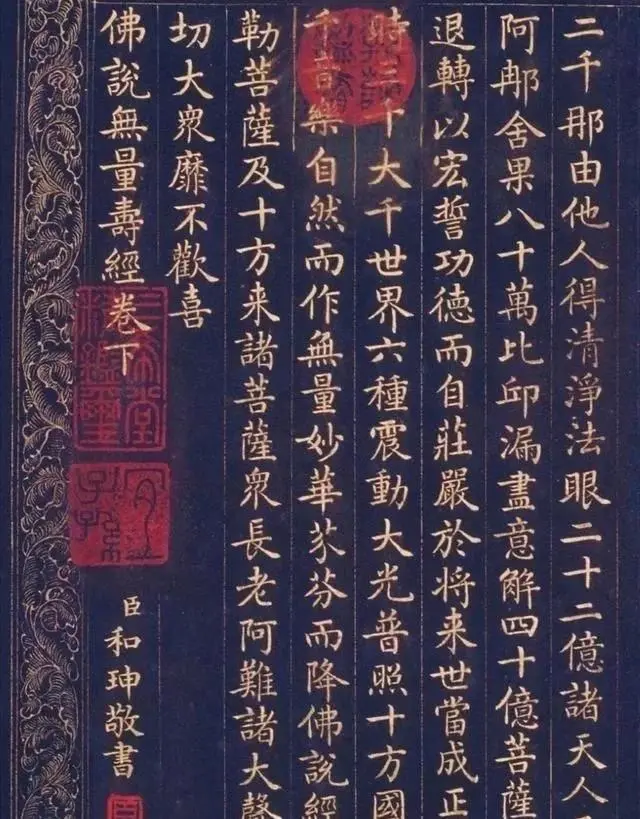 二千那由他人得清淨法眼二十二億諸天人
阿那舍果八十萬比邱漏盡意解四十億菩薩
退轉以宏誓功德而自莊嚴於将来世當成正
時三千大千世界六種震動大光普照十方國
千音樂自然而作無量妙華芬芬而降佛說經
勒菩薩及十方来諸菩薩衆長老阿難諸大聲
切大衆靡不歡喜
佛說無量壽經卷下
臣和珅敬書
三希堂精鑑璽
宜子孫